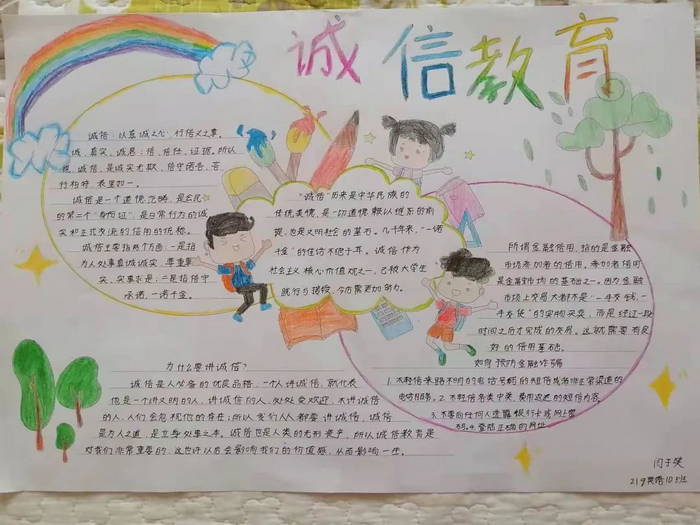 诚信教育
诚信：以真诚之心，行信义之事。
诚，真实，诚恳；信，信任，证据。所以
诚信，是诚实无欺，信守诺言，言
行相符，表里如一。
诚信是一个道德范畴，是公民
的第二个"身份证"，是日常行为的诚
实和正式交流的信用的统称。
诚信主要指两个方面：一是指
为人处事真诚诚实，尊重事
实，实事求是；二是指信守
承诺，一诺千金。
"诚信"历来是中华民族的
传统美德，是一切道德赖以维系的前
提，也是文明社会的基石。几千年来，"一诺
千金"的佳话不绝于耳。诚信作为
社会主义核心价值观之一，已被大学生
践行与接收，今后需更加努力。
所谓金融信用，指的是金融
市场参加者的信用。参加者信用
是金融市场的基础之一。因为金融
市场上交易大都不是"一手交钱，一
手交货"的实物买卖，而是经过一段
时间之后才完成的交易。这就需要有良
好的信用基础。
如何预防金融诈骗
1.不轻信来路不明的电话号码的短信或者非正常渠道的
电话服务。2.不轻信各类中奖、费用返还的短信内容。
3.不要向任何人透露银行卡或网上密
码。4.登陆正确的网站
为什么要讲诚信？
诚信是人必备的优良品格，一个人讲诚信，就代表
他是一个讲文明的人，讲诚信的人，处处受欢迎，不讲诚信
的人，人们会忽视他的存在；所以我们人人都要讲诚信，诚信
是为人之道，是立身处事之本。诚信也是人类的无形资产，所以诚信教育是
对我们非常重要的，这也许以后会影响我们的价值感，从而影响一生。
闫于笑
219英语10班